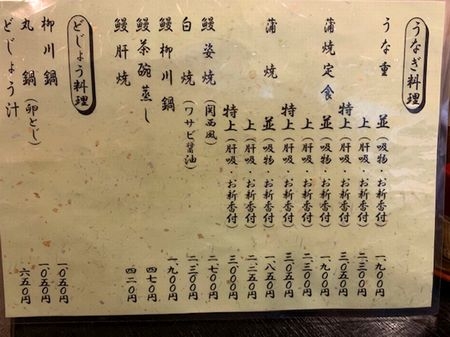 うなぎ料理
うな重 並(吸物・お新香付) 一、九〇〇円
上(肝吸・お新香付) 二、三〇〇円
特上(肝吸・お新香付) 三、〇五〇円
蒲焼定食 並(吸物・お新香付) 一、九〇〇円
上(肝吸・お新香付) 二、三〇〇円
特上(肝吸・お新香付) 三、〇五〇円
蒲焼 並(吸物・お新香付) 一、八五〇円
上(肝吸・お新香付) 二、二五〇円
特上(肝吸・お新香付) 三、〇〇〇円
鰻姿焼(関西風) 二、七〇〇円
白焼(ワサビ醤油) 二、三〇〇円
鰻柳川鍋 一、九〇〇円
鰻茶碗蒸し 四七〇円
鰻肝焼 四二〇円
どじょう料理
柳川鍋 一、〇五〇円
丸鍋(卵とじ) 一、〇五〇円
どじょう汁 六五〇円